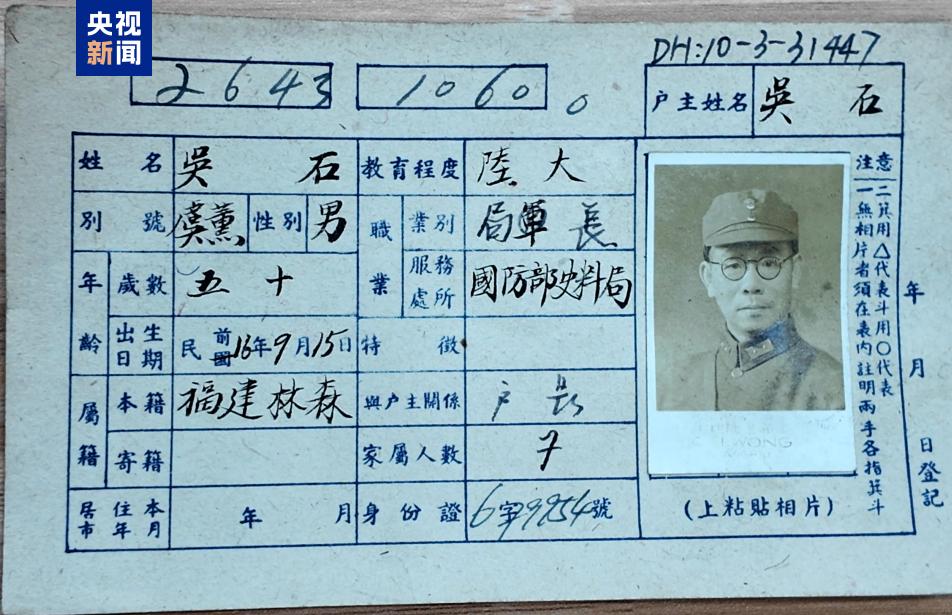 央视
新闻
DH:10-3-31447
2643
1060
0
户主姓名 吳石
姓名 吳石 教育程度 陸大
別號 虞薰 性別 男 職業 業別 局軍長
年齡 歲數 五十 服務處所 國防部史料局
出生日期 民前國16年9月15日 特徵
屬籍 本籍 福建林森 與户主關係 户長
寄籍 家屬人數 7
居住本市年月 年 月 身份證 6字9954號
注意
一無相片者須在表內註明兩手各指箕斗
二箕用△代表斗用〇代表
(上粘貼相片)
年 月 日登記
WONG